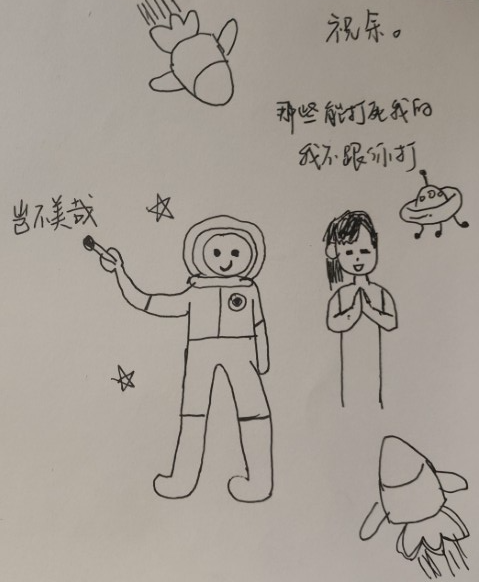 祝余。
那些能打死我的
我不跟你打
岂不美哉